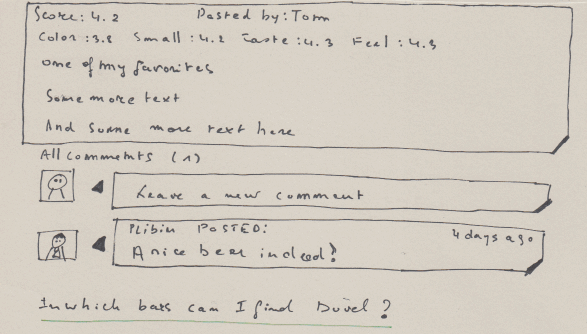 Score: 4.2 Posted by: Tom
Color: 3.8 Small: 4.2 Taste: 4.3 Feel: 4.3
one of my favorites
Some more text
And some more text here
All comments (1)
Leave a new comment
POSTED:
4 days ago
A nice beer indeed!
In which bars can I find Duvel?